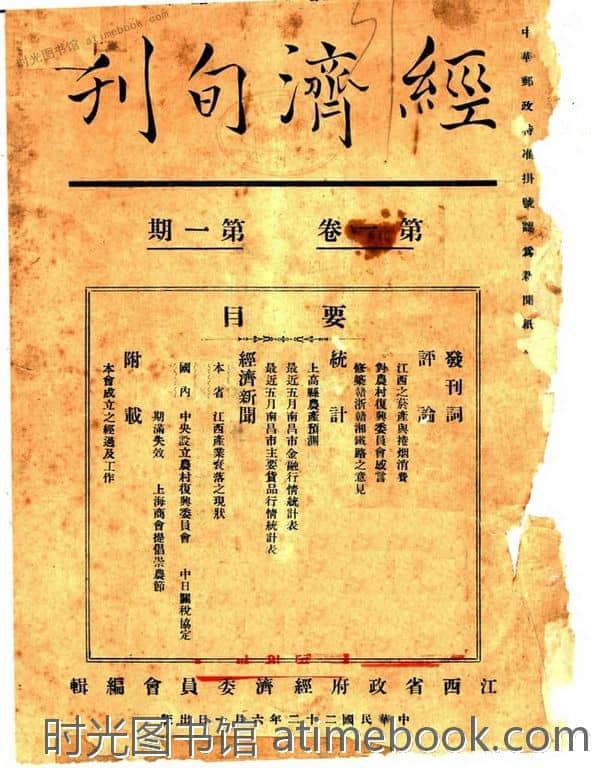 时光图书馆 atimebook.com
經濟旬刊
中華郵政特准掛號認為新聞紙
第一卷 第一期
要目
發刊詞
評論
江西之菸產與捲烟消費
對農村復興委員會感言
修築贛浙贛湘鐵路之意見
統計
上高縣農產預測
最近五月南昌市金融行情統計表
最近五月南昌市主要貨品行情統計表
經濟新聞
本省 江西產業衰落之現狀
國內 中央設立農村復興委員會 中日關稅協定
期滿失效 上海商會提倡崇農節
附載
本會成立之經過及工作
江西省政府經濟委員會編輯
中華民國二十二年六月 日出版
时光图书馆 atimebook.com